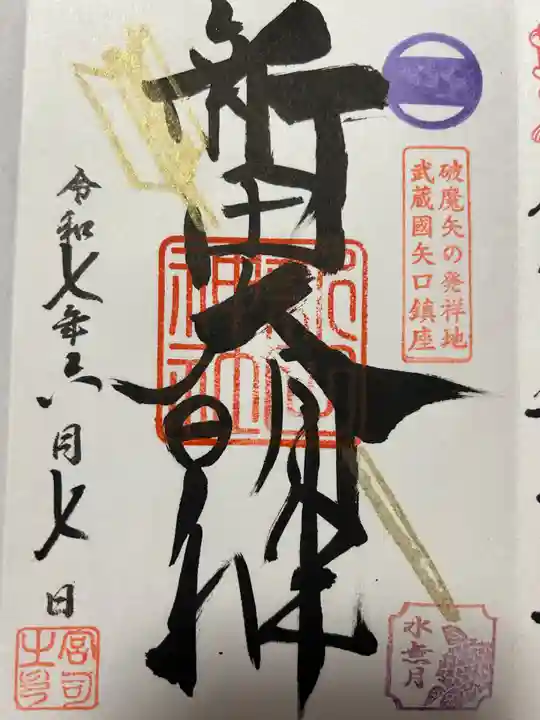 破魔矢の発祥地
武蔵國矢口鎮座
新田大明神
令和七年六月七日
宮司
之印
水無月